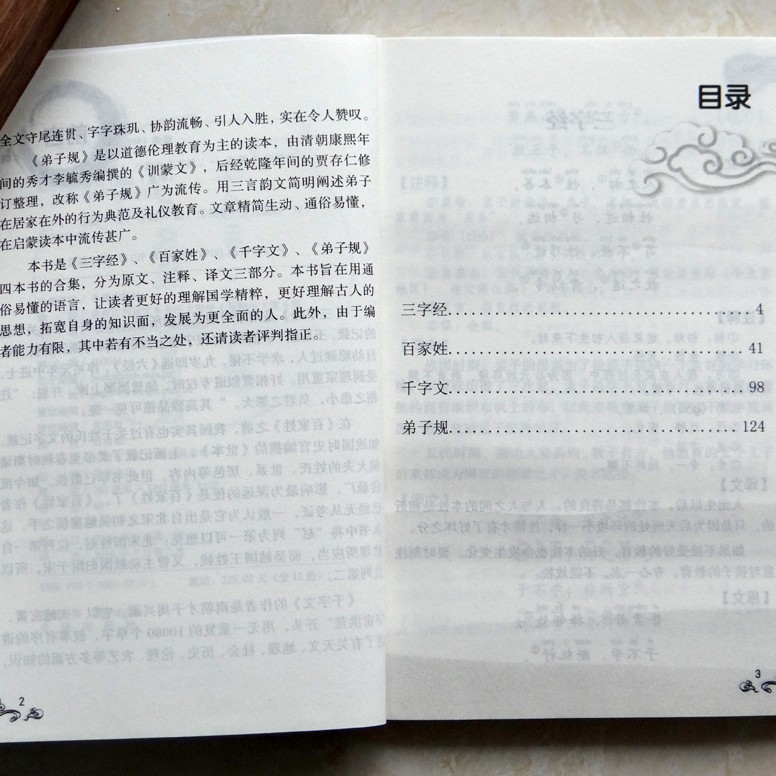 全文守尾连贯、字字珠玑、协韵流畅、引人入胜，实在令人赞叹。
《弟子规》是以道德伦理教育为主的读本，由清朝康熙年
间的秀才李毓秀编撰的《训蒙文》，后经乾隆年间的贾存仁修
订整理，改称《弟子规》广为流传。用三言韵文简明阐述弟子
在居家在外的行为典范及礼仪教育。文章精简生动、通俗易懂，
在启蒙读本中流传甚广。
本书是《三字经》、《百家姓》、《千字文》、《弟子规》
四本书的合集，分为原文、注释、译文三部分。本书旨在用通
俗易懂的语言，让读者更好的理解国学精粹，更好理解古人的
思想，拓宽自身的知识面，发展为更全面的人。此外，由于编
者能力有限，其中若有不当之处，还请读者评判指正。
2
目录
三字经........................................4
百家姓........................................41
千字文........................................98
弟子规........................................124
3